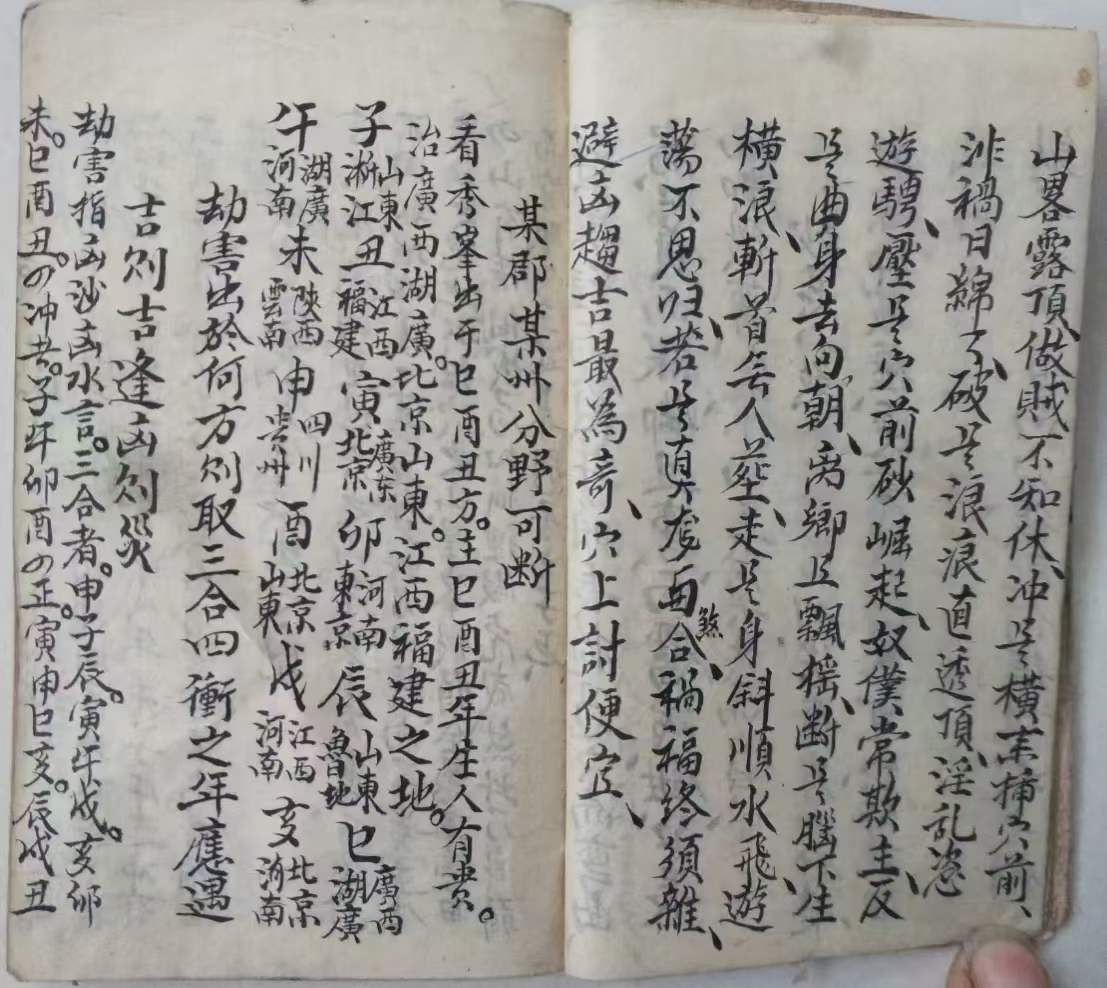 山畧露頂、做賊不知休、冲是橫來捶穴前、
泮禍日綿了、破是浪浪直透頂、淫乱恣
遊騁、壓是穴前砂崛起、奴僕常欺主、反
是曲身去向朝、离鄉且飄搖、断是腦下生
橫浪、斬首無人塟、走是身斜順水飛、遊
蕩不思归、若是真龙西煞合、禍福终須雜、
避凶趨吉最為奇、穴上討便宜、
某郡某州分野可断
看秀峯出于巳酉丑方。主巳酉丑年生人有贵。
治廣西湖廣。北京山東。江西福建之地。
子山東淅江丑江西福建寅廣东北京卯河南東京辰山東魯地巳廣西湖廣
午湖廣河南未陜西雲南申四川贵州酉北京山東戌江西河南亥北京河南
劫害出於何方则取三合四衝之年應遇
吉则吉逢凶则災
劫害指凶沙凶水言。三合者。申子辰。寅午戌。亥卯
未。巳酉丑。の冲者。子午卯酉の正。寅申巳亥。辰戌丑